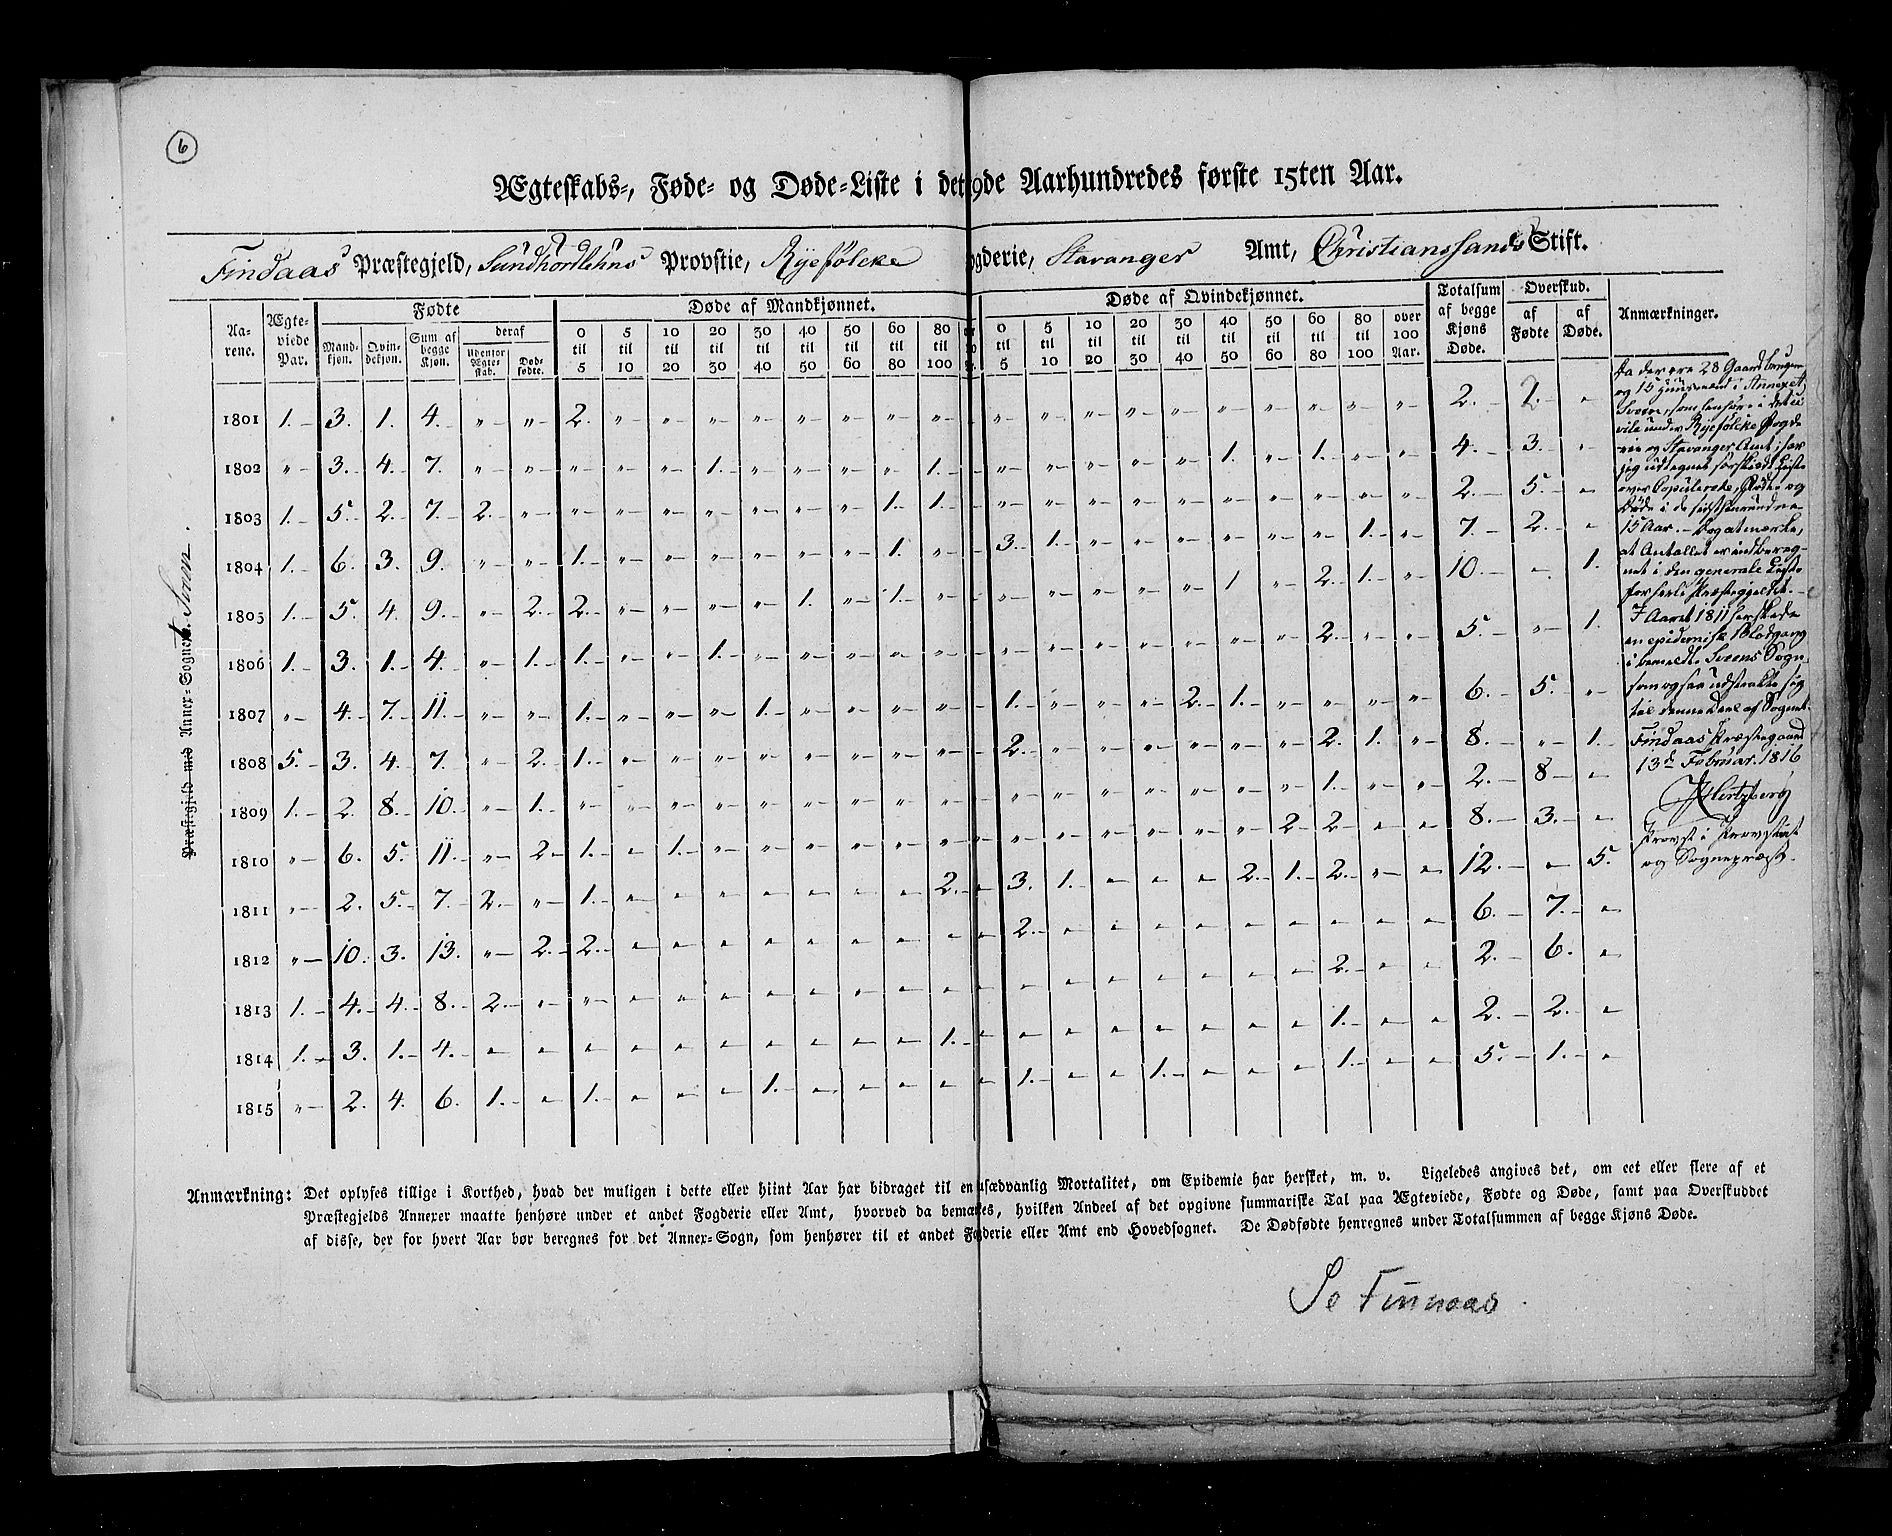 6
Ægteskabs-, Føde- og Døde-Liste i det 19de Aarhundredes første 15ten Aar.
Findaas Præstegjeld, Sundhordlehns Provstie, Ryefölcke Fogderie, Stavanger Amt, Christianssands Stift.
Aarene. Ægteviede Par. Fødte Døde af Mandkjønnet. Døde af Qvindekjønnet. Totalsum af begge Kjøns Døde. Overskud. Anmærkninger.
Mandkjøn. Qvindekjøn. Sum af begge Kjøn. deraf Udenfor Ægteskab. Dødfødte. 0 til 5 5 til 10 10 til 20 20 til 30 30 til 40 40 til 50 50 til 60 60 til 80 80 til 100 0 til 5 5 til 10 10 til 20 20 til 30 30 til 40 40 til 50 50 til 60 60 til 80 80 til 100 over 100 Aar. af Fødte af Døde.
Præstegjeld med Annex-Sognene. Sveen.
1801 1. 3. 1. 4. " " 2. " " " " " " " " " " " " " " " " " " 2. 2 "
1802 " 3. 4. 7. " " " " " 1. " " " " 1. " " " " " 1. " 1. " " 4. 3. "
1803 1. 5. 2. 7. 2. " " " " " " " " 1. 1. " " " " " " " " " " 2. 5. "
1804 1. 6. 3. 9. " " 1. " " " " " " 1. " 3. 1. " " " " " " 1. " 7. 2. "
1805 1. 5. 4. 9. " 2. 2. " " " " 1. " 1. " " " " " " 1 " 2. 1. " 10. " 1.
1806 1. 3. 1. 4. " 1. 1. " " 1. " " " " " " " " " " " " 2. " " 5. " 1.
1807 " 4. 7. 11. " " 1. " " " 1. " " " " 1. " " " 2. 1. " " " " 6. 5. "
1808 5. 3. 4. 7. " 2. 1. " " " " " " " " 2. " " " " " " 2. 1. " 8. " 1.
1809 1. 2. 8. 10. " 1. " " " " " " " " " " " " " " " " 1. " " 2. 8 "
1810 " 6. 5. 11. " 2. 1. " 1. " " " " " " " " " " " " 2 2. " " 8. 3. "
1811 " 2. 5. 7. 2. " 1. " " " " " " " 2. 3. 1. " " " 2. 1. 2. " " 12. " 5.
1812 " 10. 3. 13. " 2. 2. " " " " " " " " 2. " " " " " " " " " 6. 7. "
1813 1. 4. 4. 8. 2. " " " " " " " " " " " " " " " " " 2. " " 2. 6. "
1814 1. 3. 1. 4. " " " " " " " " " " 1. " " " " " " " 1. " " 2. 2. "
1815 " 2. 4. 6. 1. " 1. " " " 1. " " " " 1. " " 1. " " " 1. " " 5. 1. "
Da der ere 28 Gaardbrugere
og 15 Huusmænd i Annexet
Sveen, som henhøre i
under Ryefölcke Fogde
rie og Stavanger Amt; har
jeg udtegnet særskildt Liste
over Copulerede, Fødte og
Døde i de sidst henrundne
15 Aar. – Dog at mærke,
at Antallet er indbereg-
net i den generale Liste
for hele Præstegjeldet. –
I Aaret 1811 herskede
en epidemisk Blodgang
i bemeldte Sveens Sogn,
som ogsaa udstrakte sig
til denne Deel af Sognet.
Findaas Præstegaard
13de Februar. 1816
Hertzberg
Provst i Provstiet
og Sognepræst.
Anmærkning: Det oplyses tillige i Korthed, hvad der muligen i dette eller hiint Aar har bidraget til en usædvanlig Mortalitet, om Epidemie har hersket, m. v. Ligeledes angives det, om eet eller flere af et
Præstegjelds Annexer maatte henhøre under et andet Fogderie eller Amt, hvorved da bemærkes, hvilken Andeel af det opgivne summariske Tal paa Ægteviede, Fødte og Døde, samt paa Overskuddet
af disse, der for hvert Aar bør beregnes for det Annex-Sogn, som henhører til et andet Fogderie eller Amt end Hovedsognet. De Dødfødte henregnes under Totalsummen af begge Kjøns Døde.
Se Finnaas.